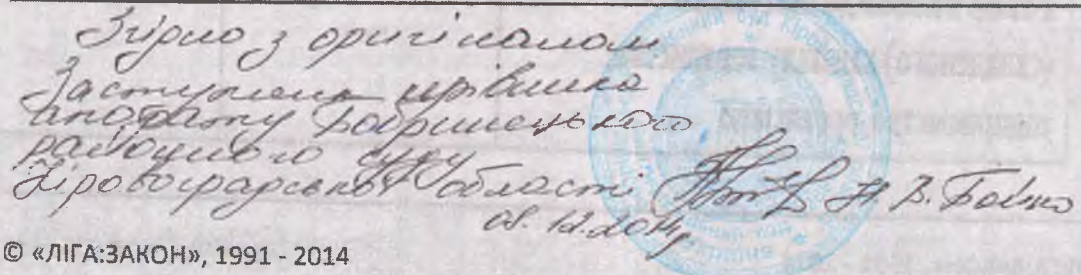 Згідно з оригіналом
Заступник керівника
апарату Бобринецького
районного суду
Кіровоградської області Н.В. Бойко
08.12.2014р
© «ЛІГА:ЗАКОН», 1991 - 2014